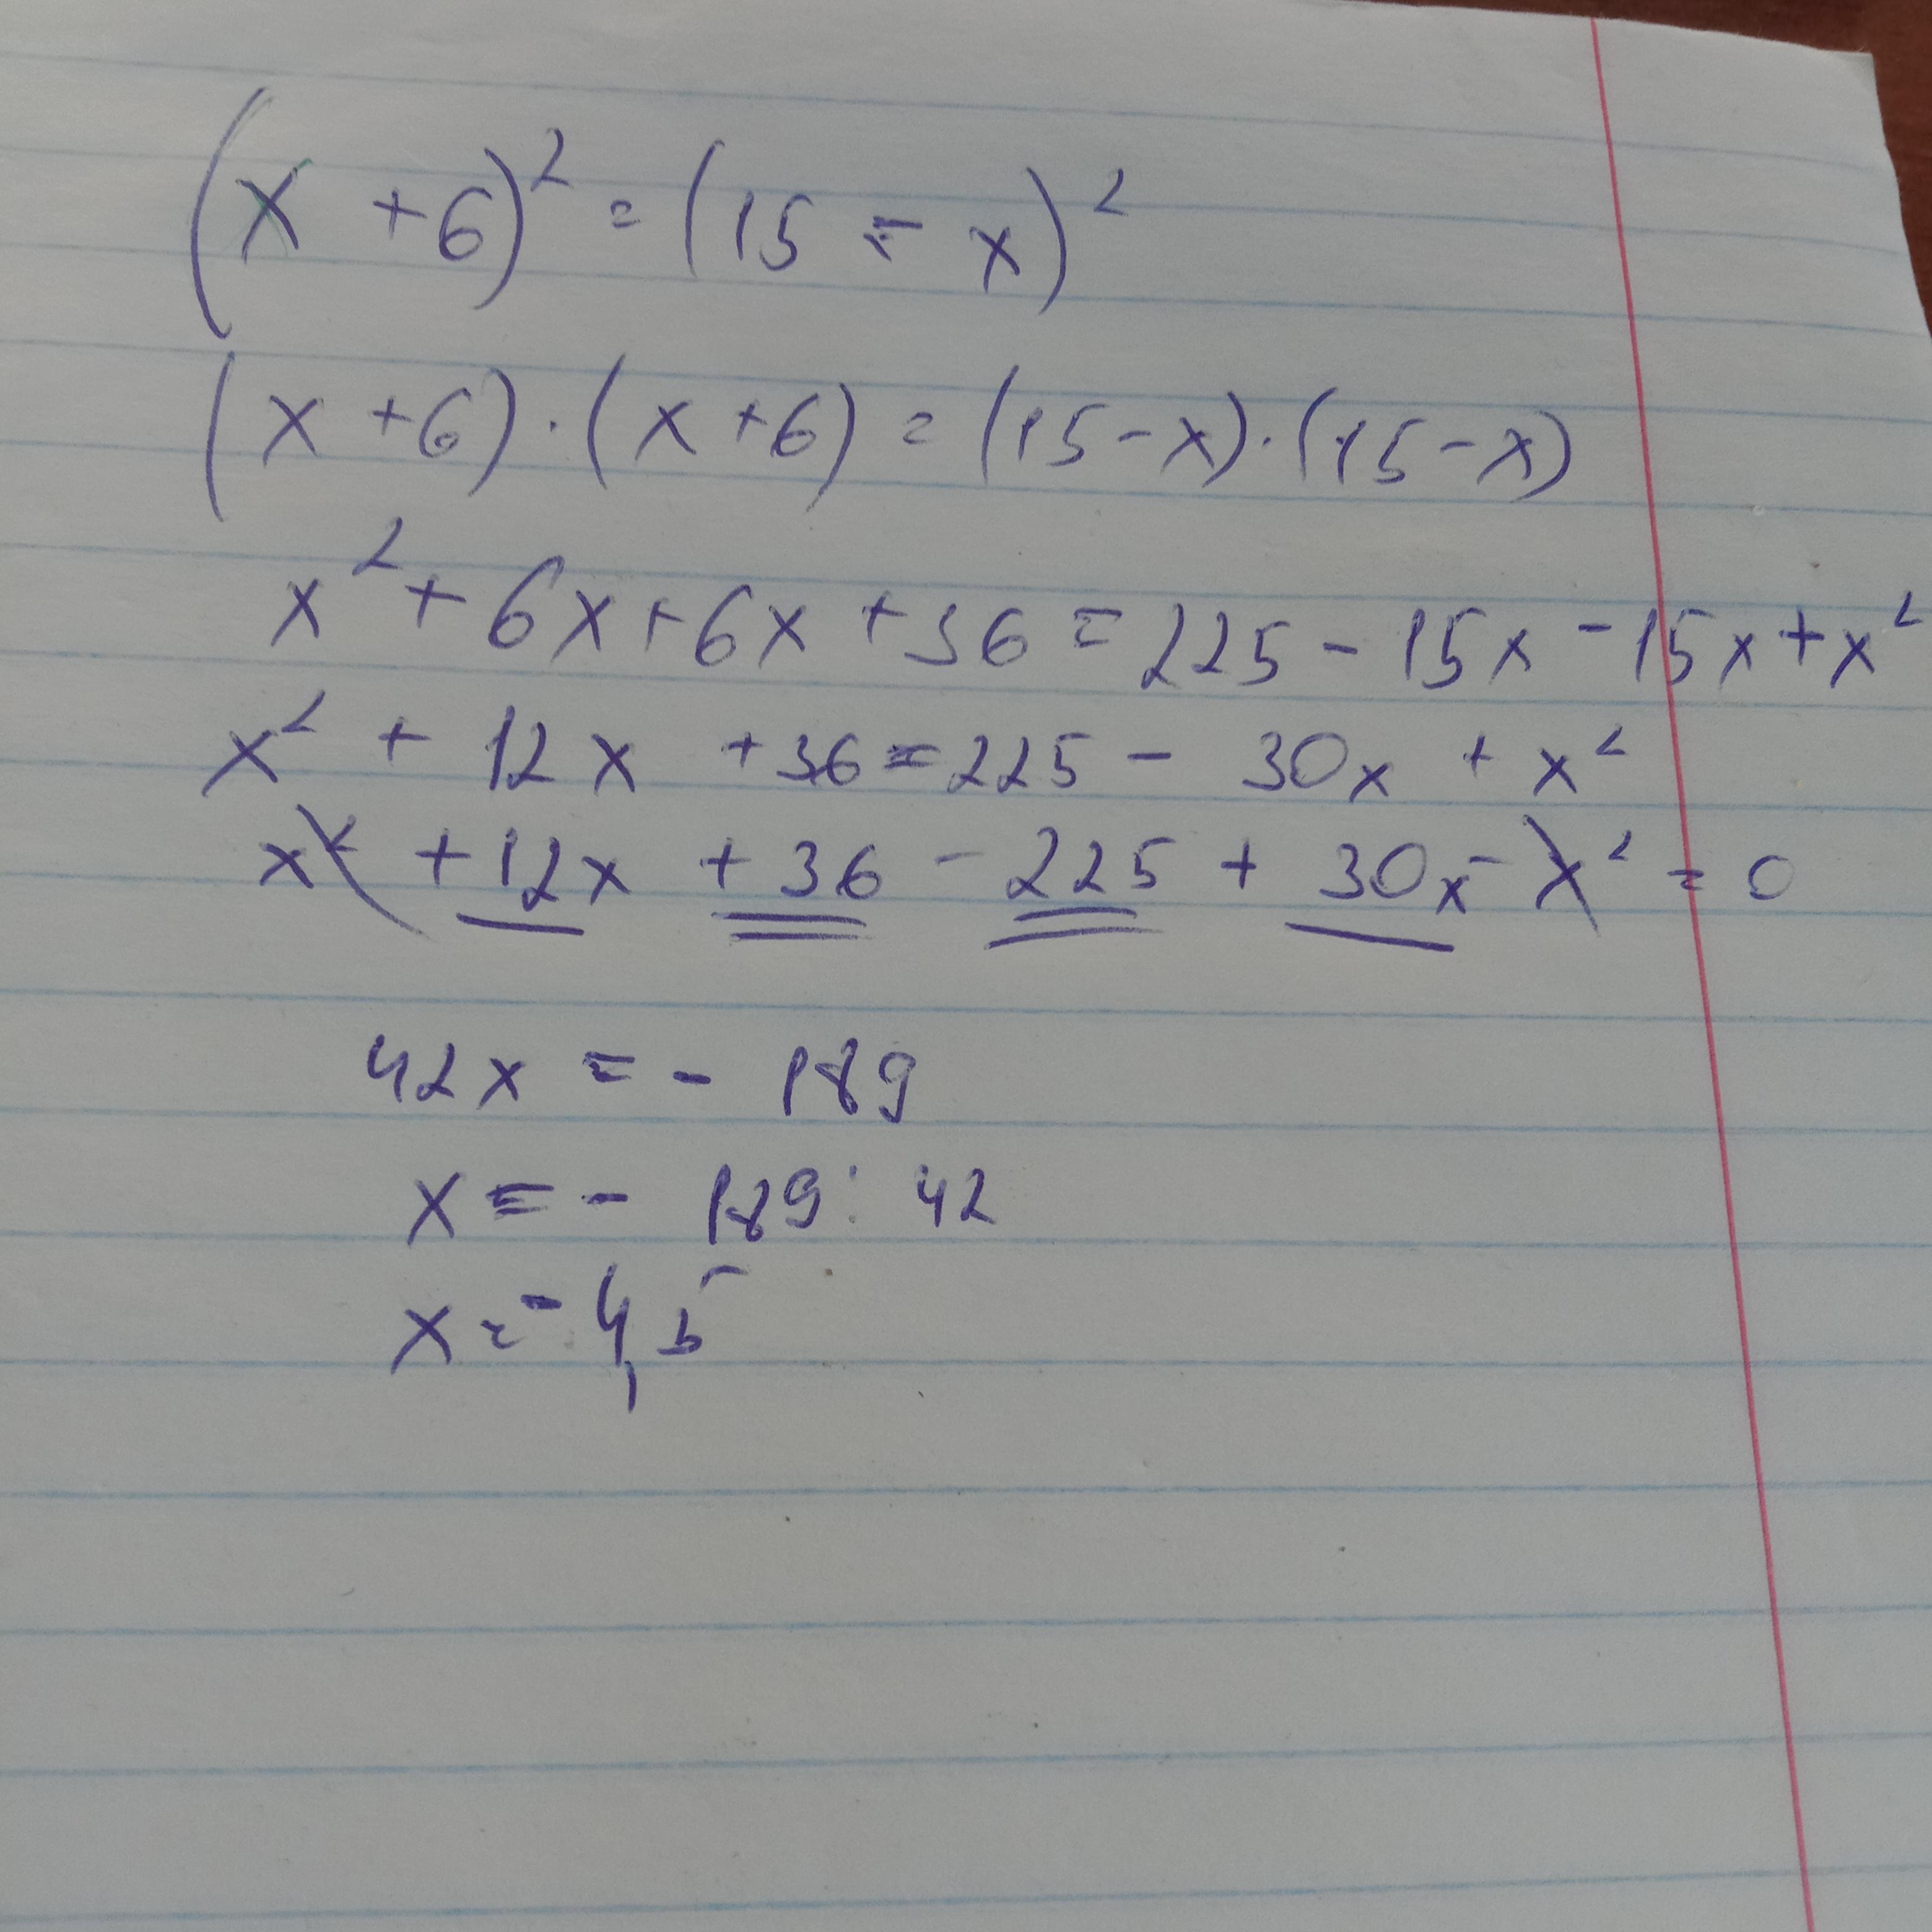 (x + 6)² = (15 - x)²
(x + 6) · (x + 6) = (15 - x) · (15 - x)
x² + 6x + 6x + 36 = 225 - 15x - 15x + x²
x² + 12x + 36 = 225 - 30x + x²
x² + 12x + 36 - 225 + 30x - x² = 0
42x = - 189
x = - 189 : 42
x = - 4,5